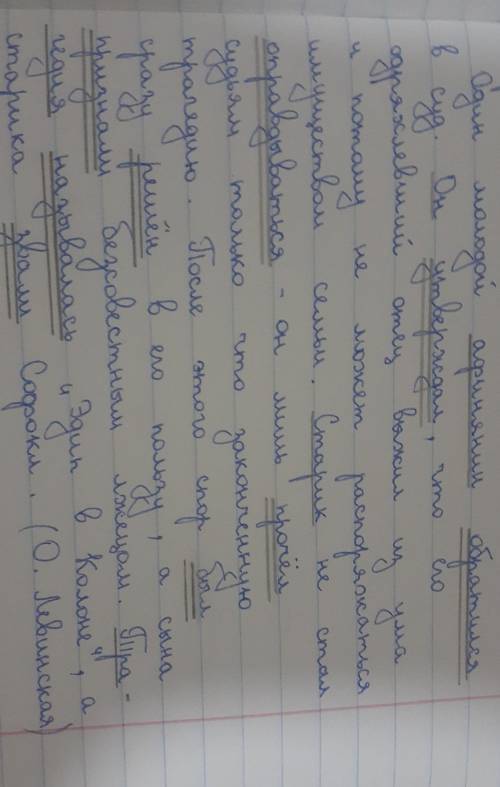 Один молодой афинянин обратился
в суд. Он утверждал, что его
одряхлевший отец выжил из ума
и потому не может распоряжаться
имуществом семьи. Старик не стал
оправдываться - он лишь прочёл
судьям только что законченную
трагедию. После этого спор был
сразу решён в его пользу, а сына
признали безсовестным лжецом. Тра-
гедия называлась "Эдип в Колоне", а
старика звали Софокл. (О. Левинская)